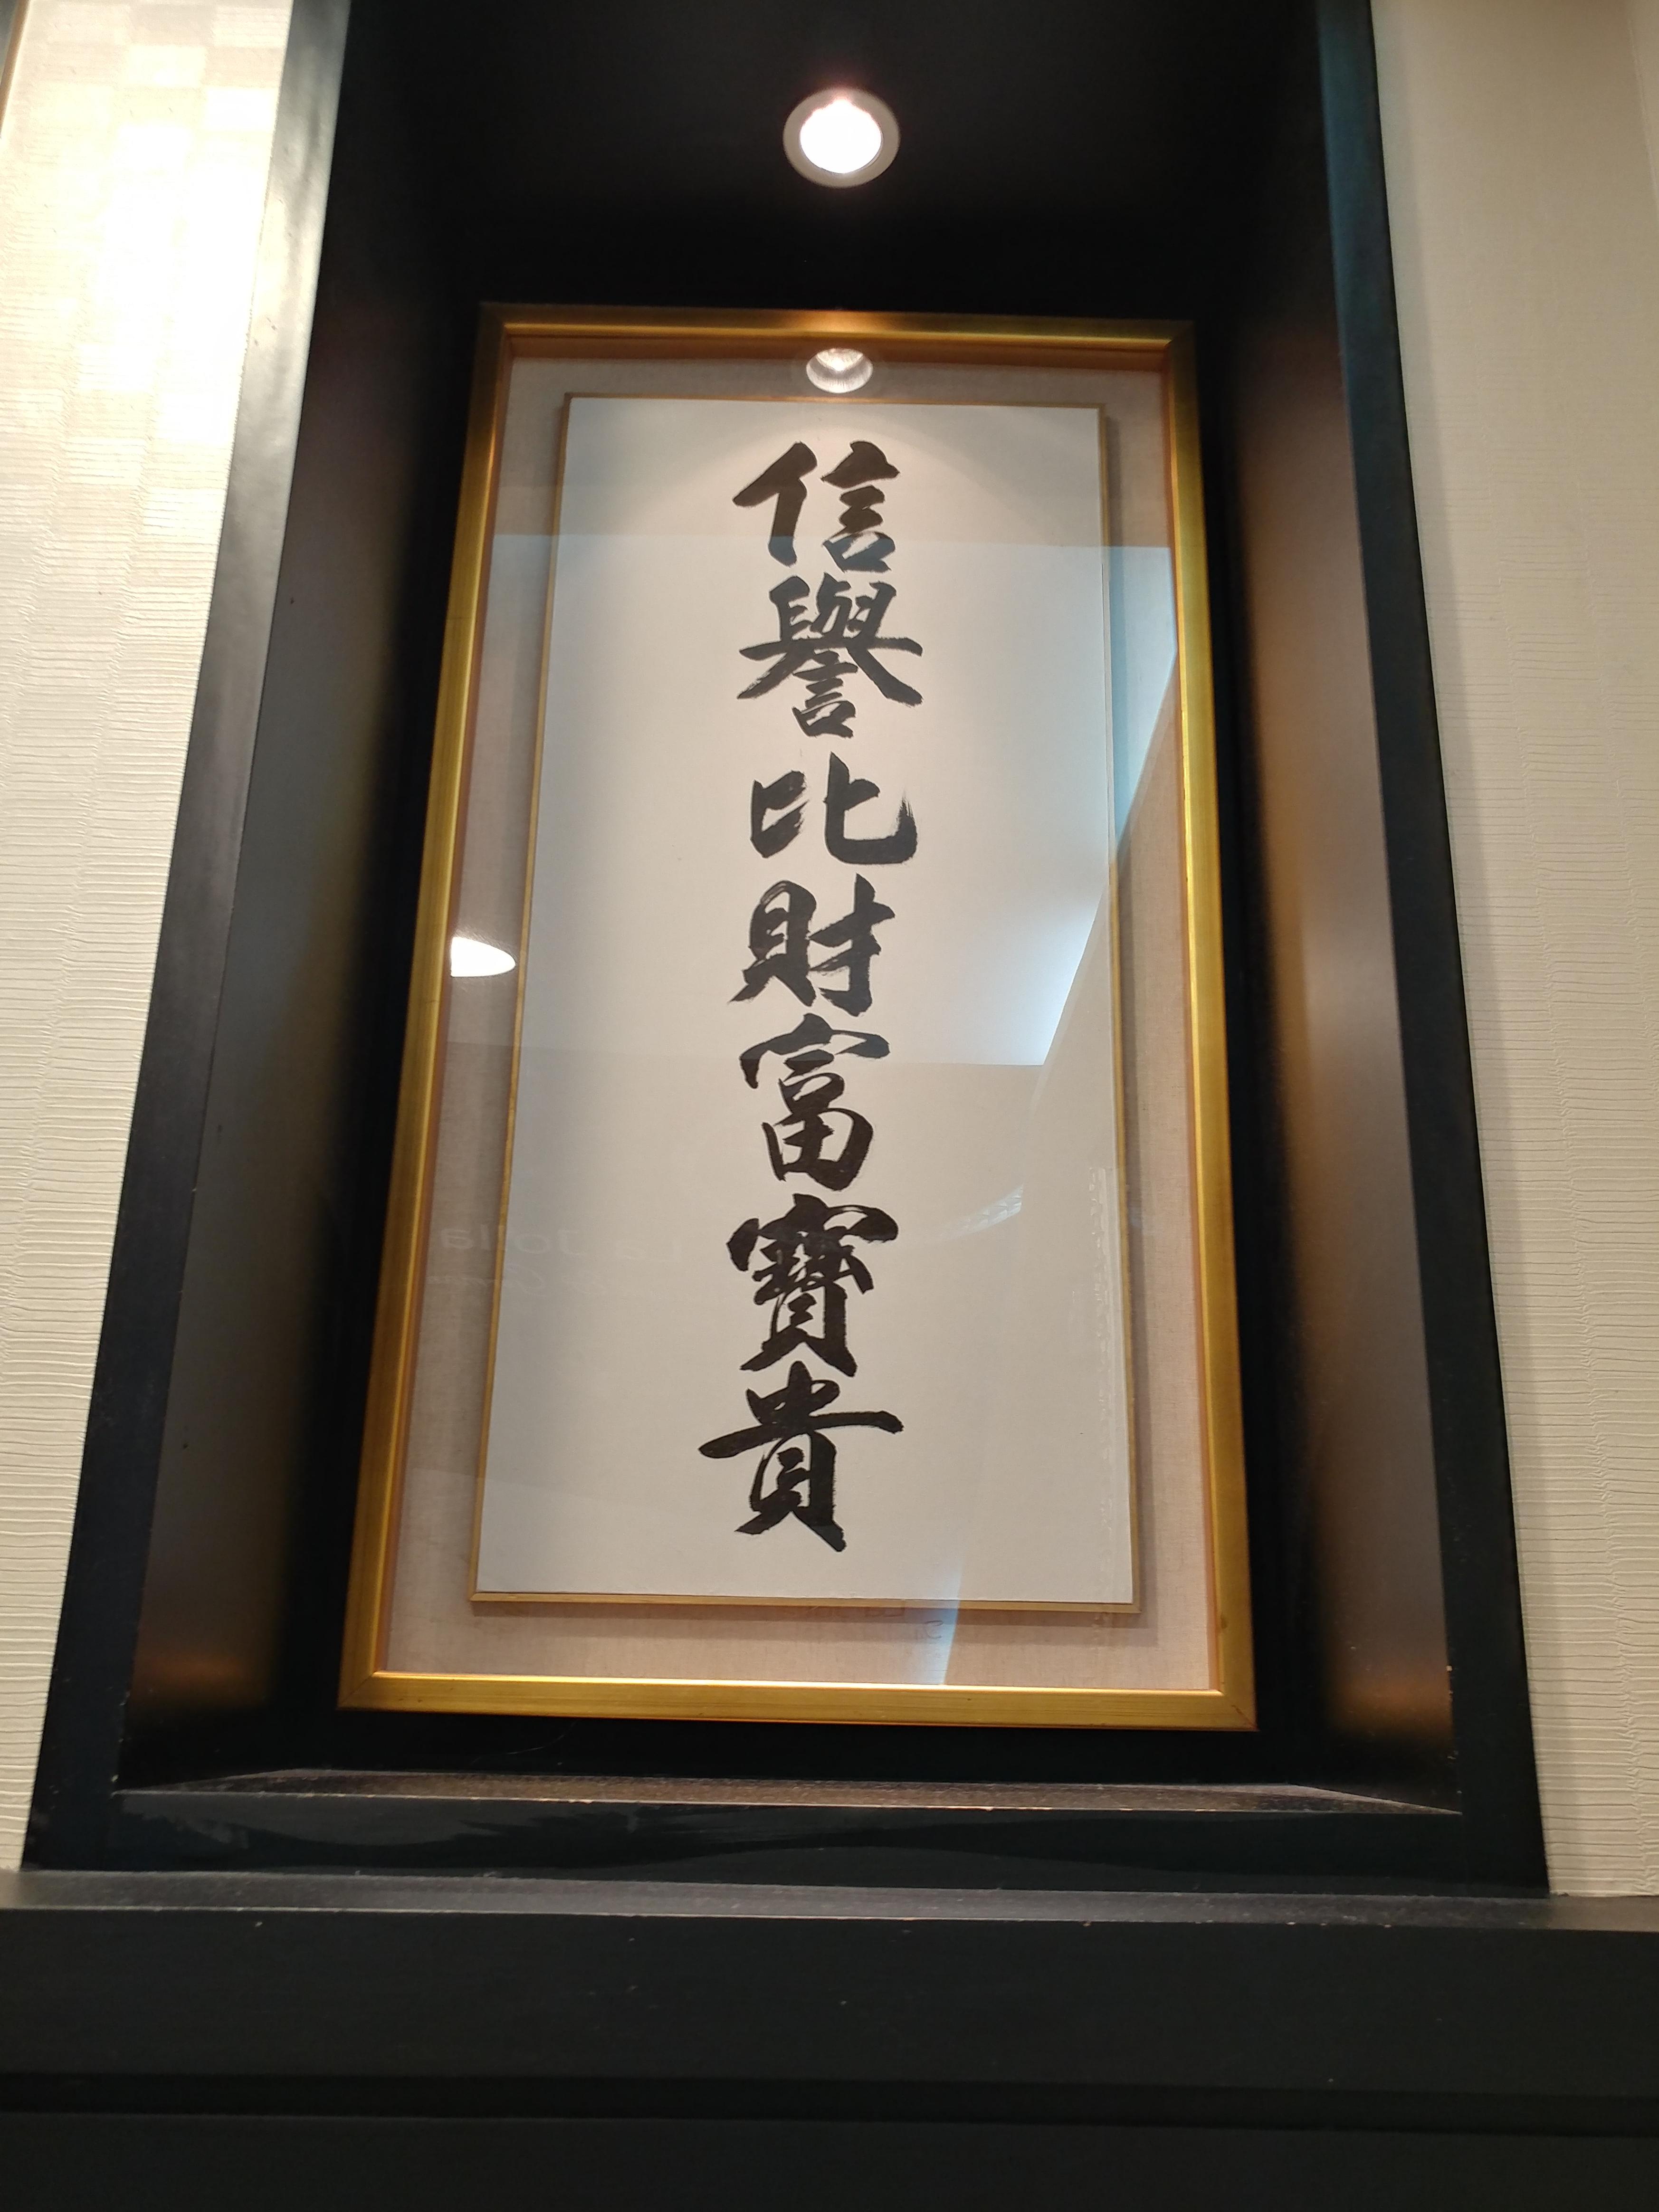 信譽比財富寶貴